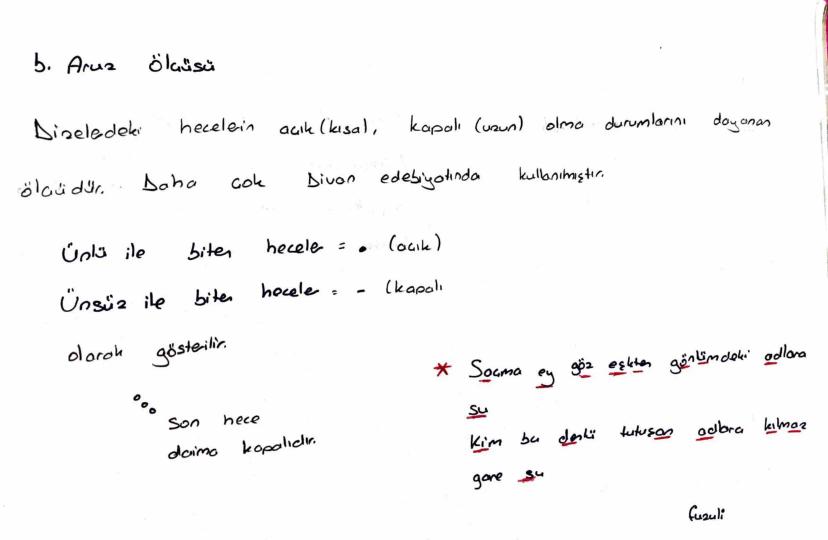 b. Aruz ölçüsü
Dizeledeki hecelein açık (kısa), kapalı (uzun) olma durumlarını dayanan
ölçüdür. Daha çok Divan edebiyatında kullanılmıştır.
Ünlü ile biten hecele = . (açık)
Ünsüz ile biten hecele = - (kapalı
olarak gösterilir.
Son hece
daima kapalıdır.
* Saçma ey göz eşkten gönlümdeki odlara
su
Kim bu denlü tutuşan odlara kılmaz
çare su
fuzuli